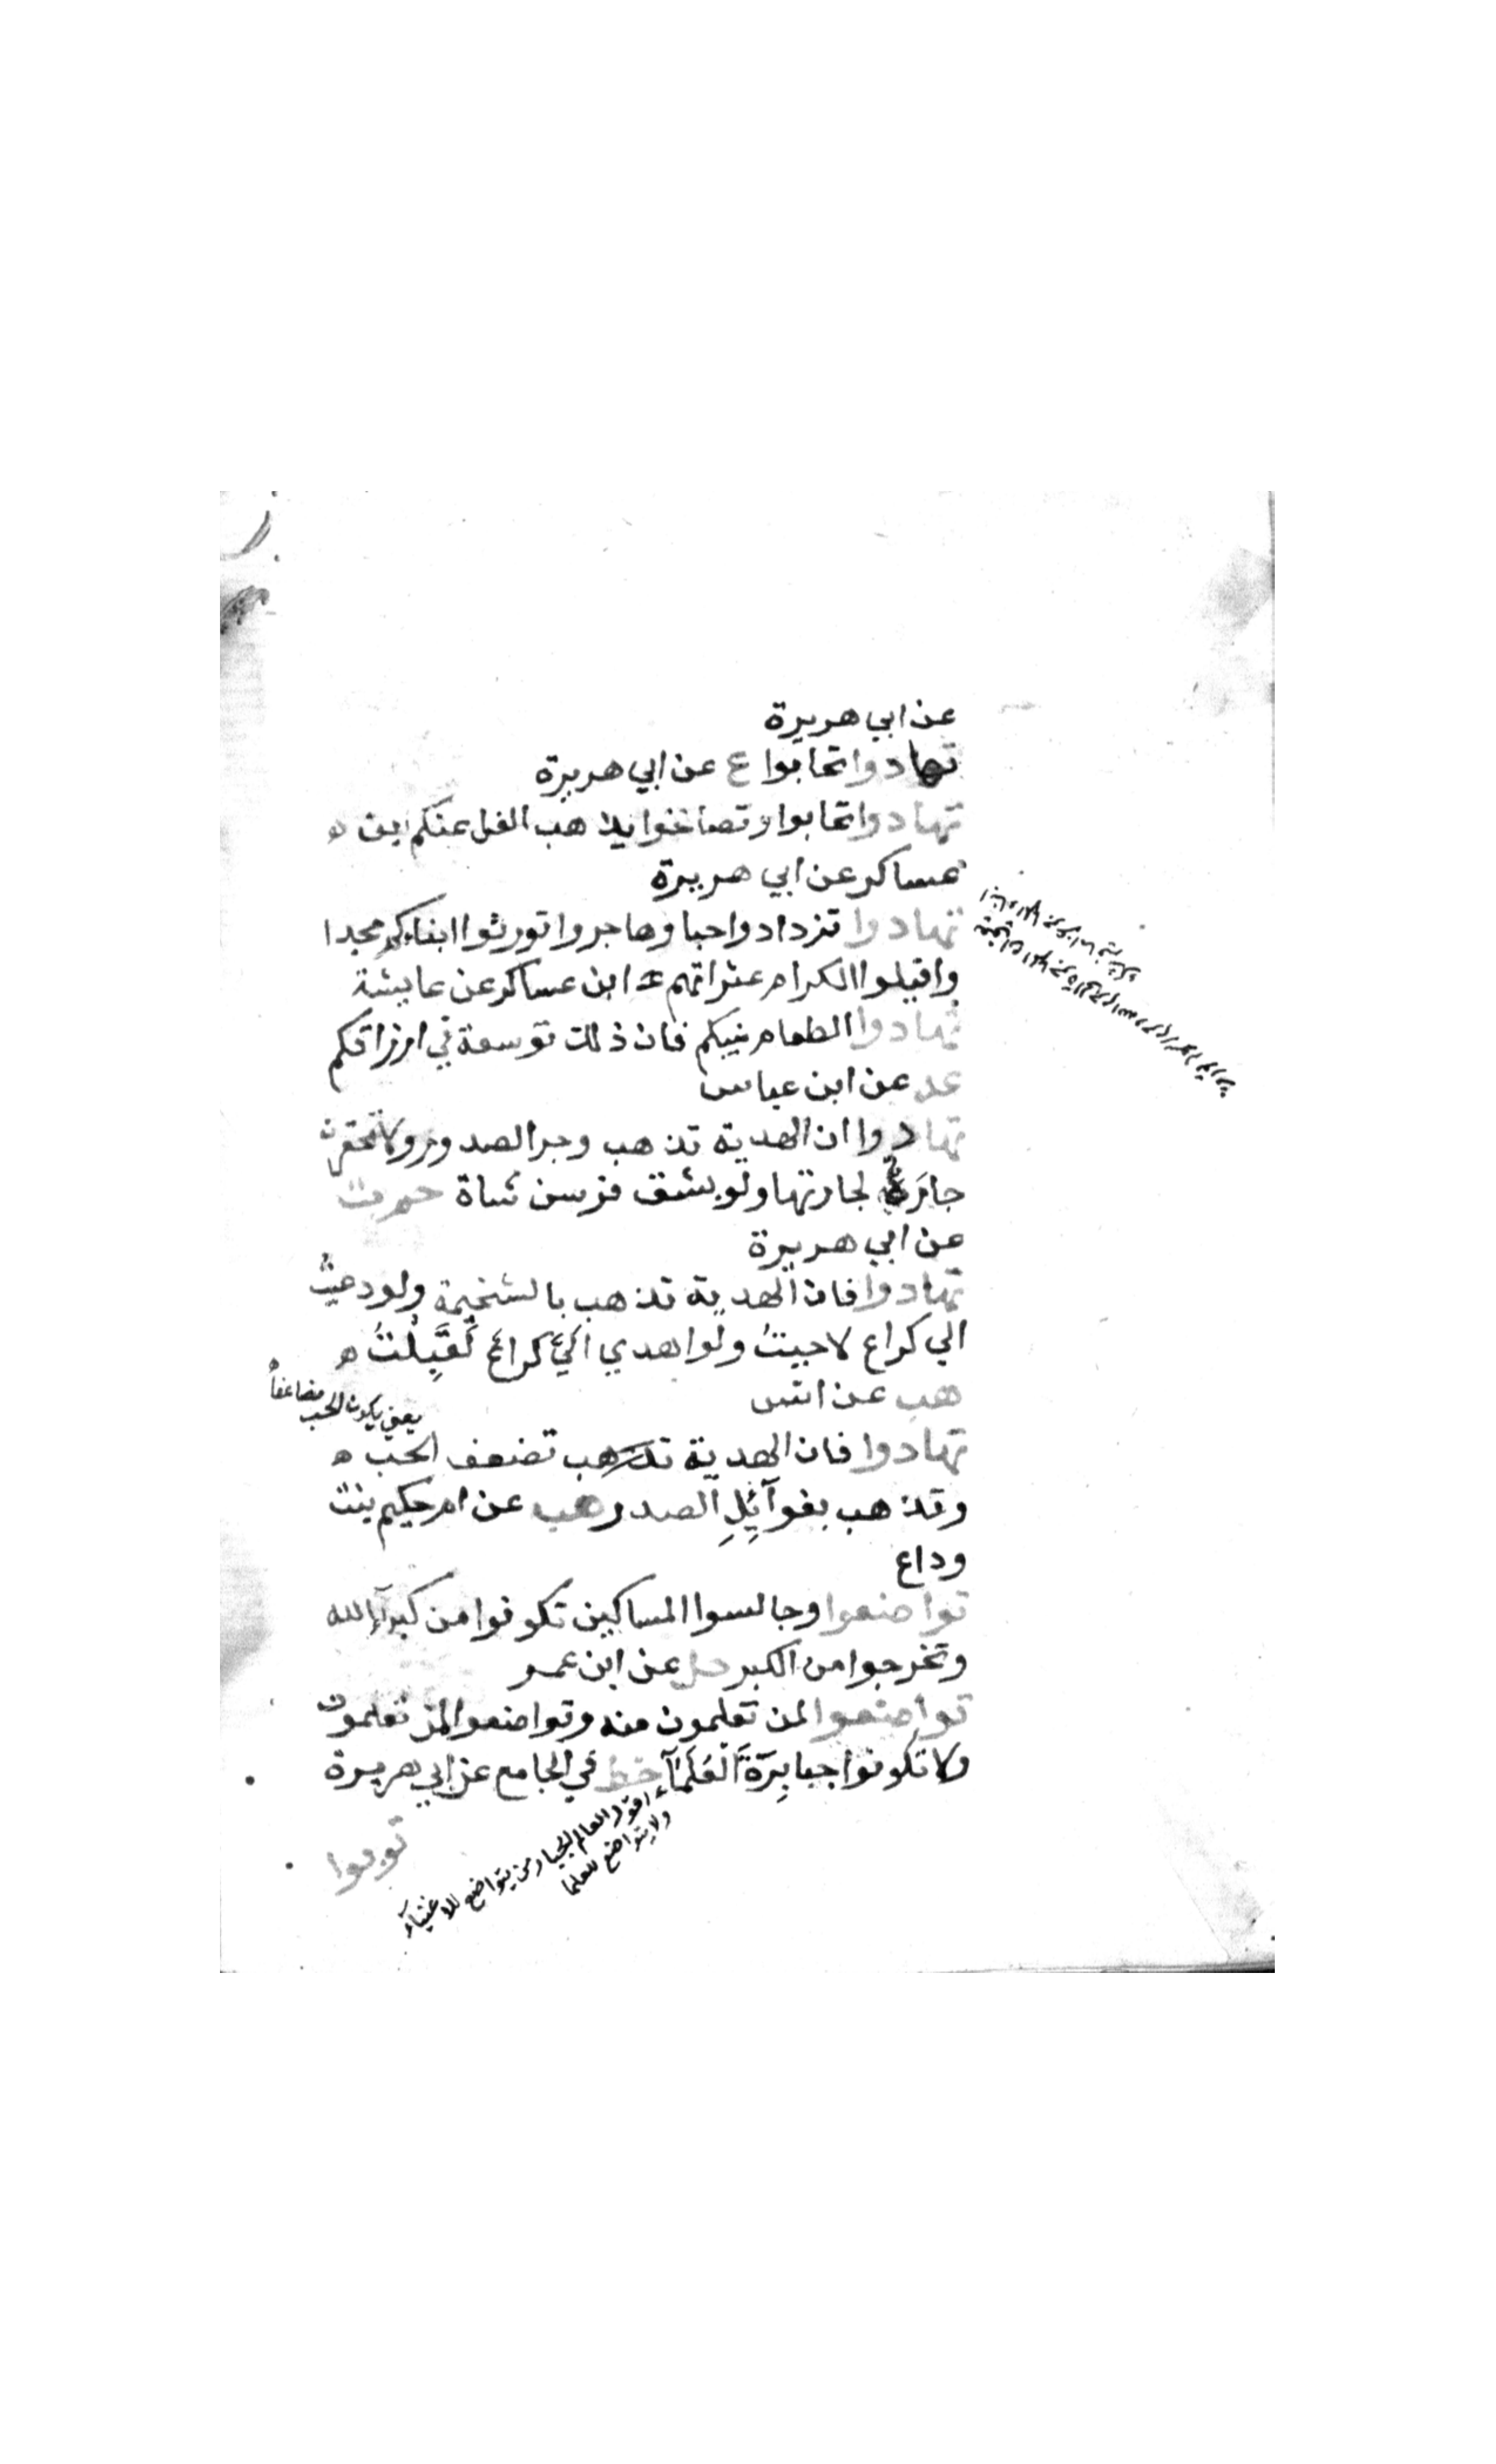 عن ابي هريرة
تهادوا تحابوا ع عن ابي هريرة
تهادوا تحابوا وتصافحوا يذهب الغل عنكم ابن ه
عساكر عن ابي هريرة
تهادوا تزدادوا حبا وهاجروا تورثوا ابناءكم مجدا
واقيلوا الكرام عثراتهم ابن عساكر عن عايشة
تهادوا الطعام بينكم فان ذلك توسعة في ارزاقكم
عد عن ابن عباس
تهادوا ان الهدية تذهب وحر الصدور ولا تحقرن
جارة لجارتها ولو بشق فرسن شاة حم ت
عن ابي هريرة
تهادوا فان الهدية تذهب بالسخيمة ولو دعيتُ
الي كراع لاجبتُ ولو اهدي الي كراع لَقَبِلْتُ ه
هب عن انس
يعني يكون الحب مضاعفاً
تهادوا فان الهدية تذهب تضعف الحب ه
وتذهب بغوآئِلِ الصدر هب عن ام حكيم بنت
وداع
تواضعوا وجالسوا المساكين تكونوا من كبرآءِ الله
وتخرجوا من الكبر حل عن ابن عمر
تواضعوا لمن تعلمون منه وتواضعوا لمن تعلمون
ولا تكونوا جبابِرَةَ الْعُلَمَآءِ خط في الجامع عن ابي هريرة
العالم الجبار من يتواضع للاغنيآء
ولا يتواضع للعلما
توبوا